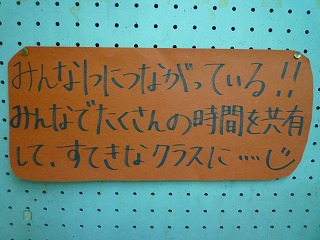 みんな1つにつながっている!!
みんなでたくさんの時間を共有
して、すてきなクラスに……